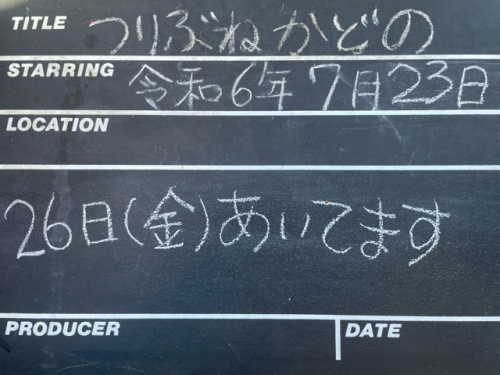 TITLE つりぶねかどの
STARRING 令和6年7月23日
LOCATION
26日(金)あいてます
PRODUCER DATE